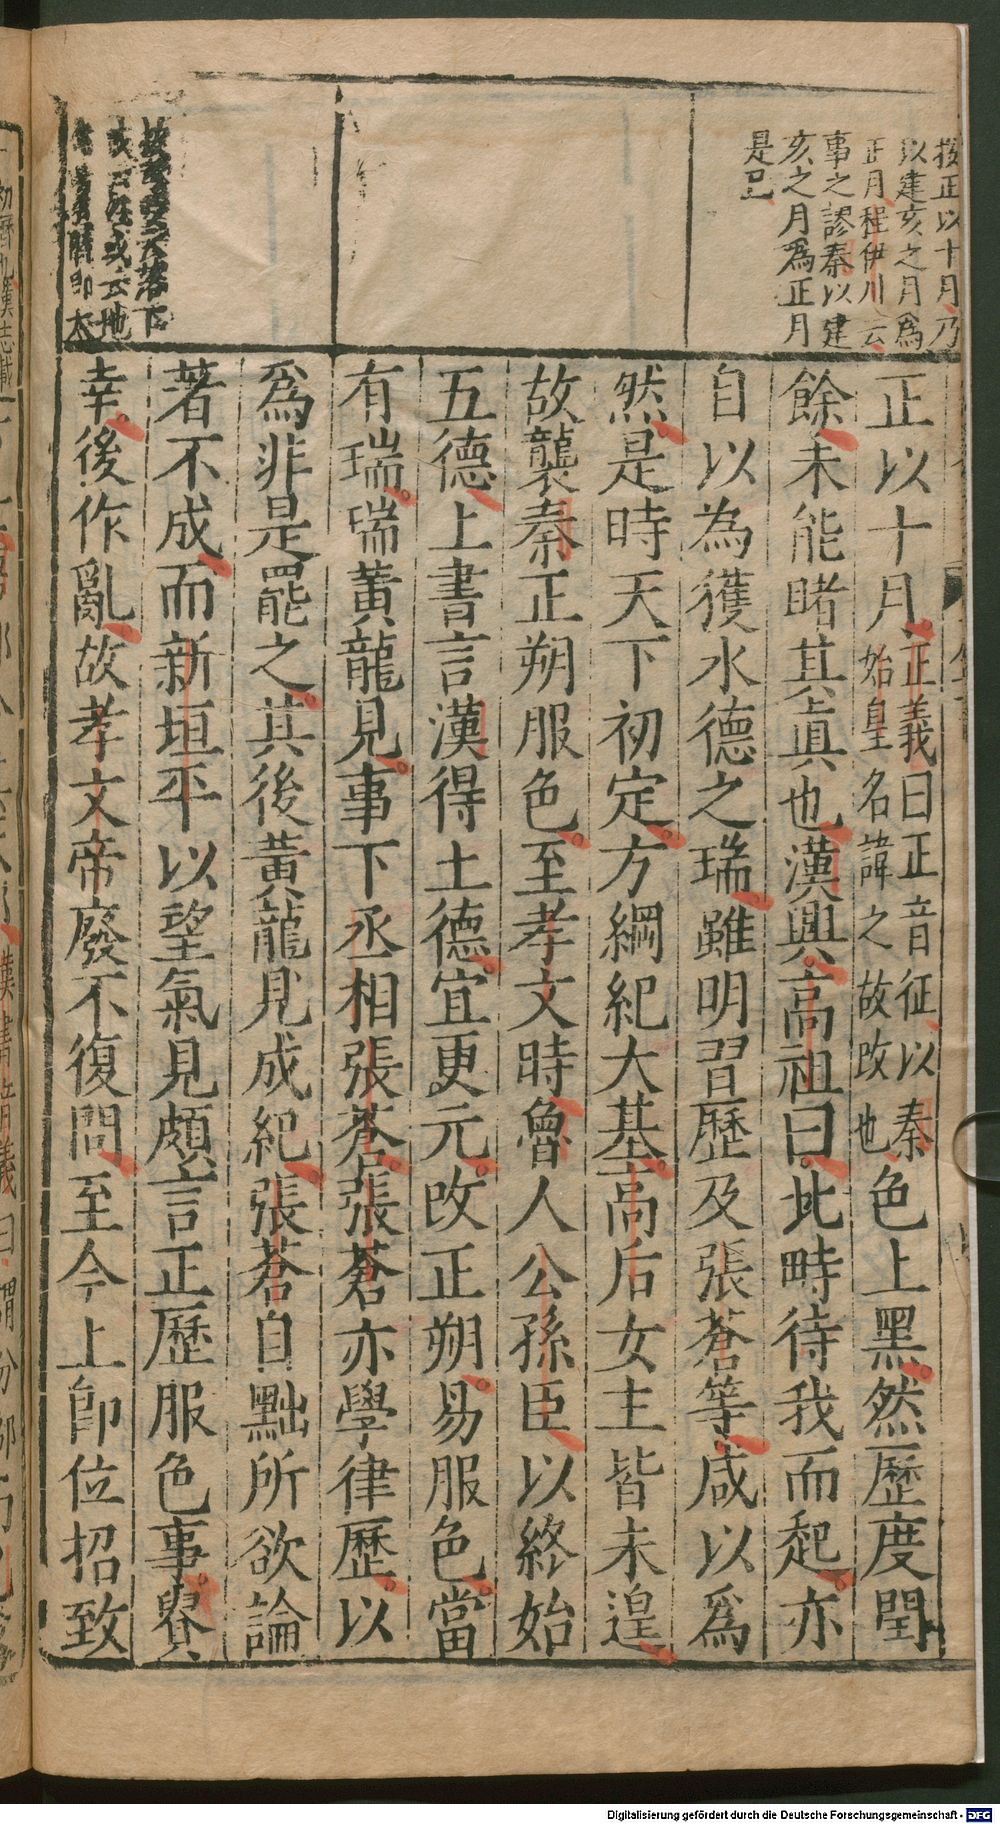 按正以十月乃
以建亥之月為
正月程伊川云
事之謬秦以建
亥之月為正月
是已
正以十月正義曰正音征以秦始皇名諱之故改也色上黑然歷度閏
餘未能睹其真也漢興高祖曰北畤待我而起亦
自以為獲水德之瑞雖明習歷及張蒼等咸以爲
然是時天下初定方綱紀大基高后女主皆未遑
故襲秦正朔服色至孝文時魯人公孫臣以終始
五德上書言漢得土德宜更元改正朔易服色當
有瑞瑞黃龍見事下丞相張蒼張蒼亦學律歷以
爲非是罷之其後黃龍見成紀張蒼自黜所欲論
著不成而新垣平以望氣見頗言正歷服色事貴
幸後作亂故孝文帝廢不復問至今上即位招致
Digitalisierung gefördert durch die Deutsche Forschungsgemeinschaft - DFG